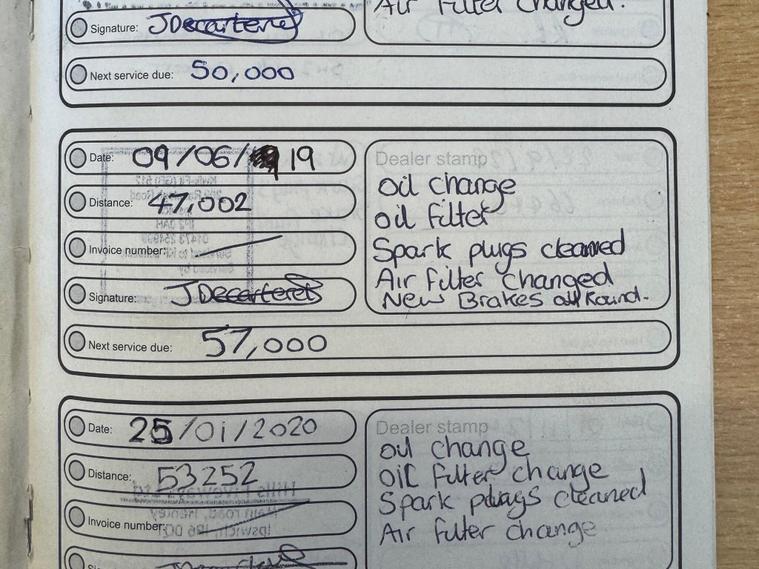 Air Filter Changed.
Signature: JDecarteret
Next service due: 50,000
Date: 09/06/ 19
Dealer stamp
oil change
Distance: 47,002
oil filter
Invoice number:
Spark plugs cleaned
Air filter changed
Signature: JDecarteret
New Brakes all Round.
Next service due: 57,000
Date: 25/01/2020
Dealer stamp
oil change
Distance: 53252
oil filter change
Spark plugs cleaned
Invoice number:
Air filter change